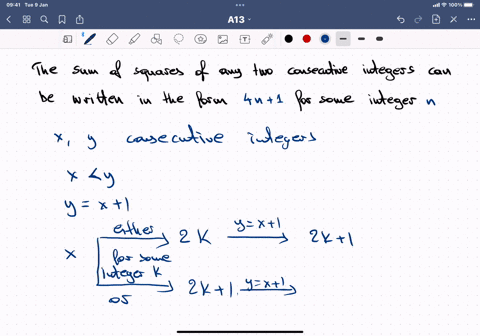 09:41 Tue 9 Jan
100%
A13
The sum of squares of any two consecutive integers can
be written in the form 4n+1 for some integer n
x, y consecutive integers
x < y
y = x+1
either
2K
y=x+1
2K+1
x
for some
integer K
or
2K+1.
y=x+1